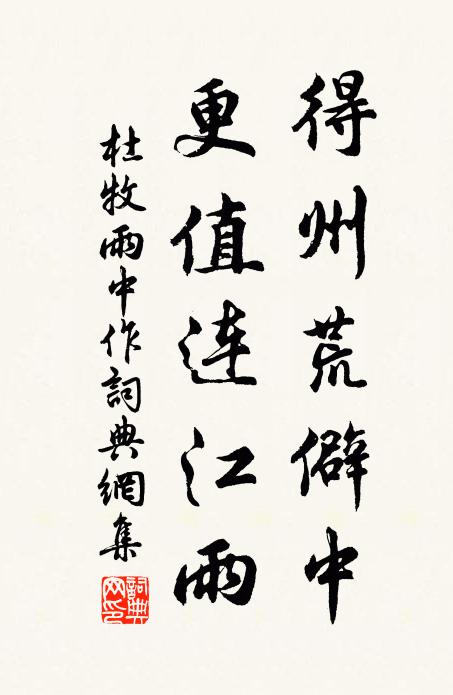 得州荒僻中
更值連江雨
杜牧雨中作詞典網集
詞典网印